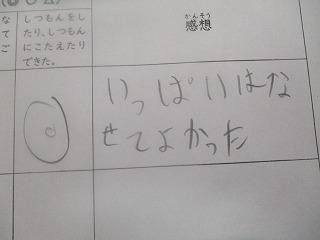 な
て
ご
しつもんをし
たり、しつもん
にこたえたり
できた。
かんそう
感想
いっぱいはな
せてよかった